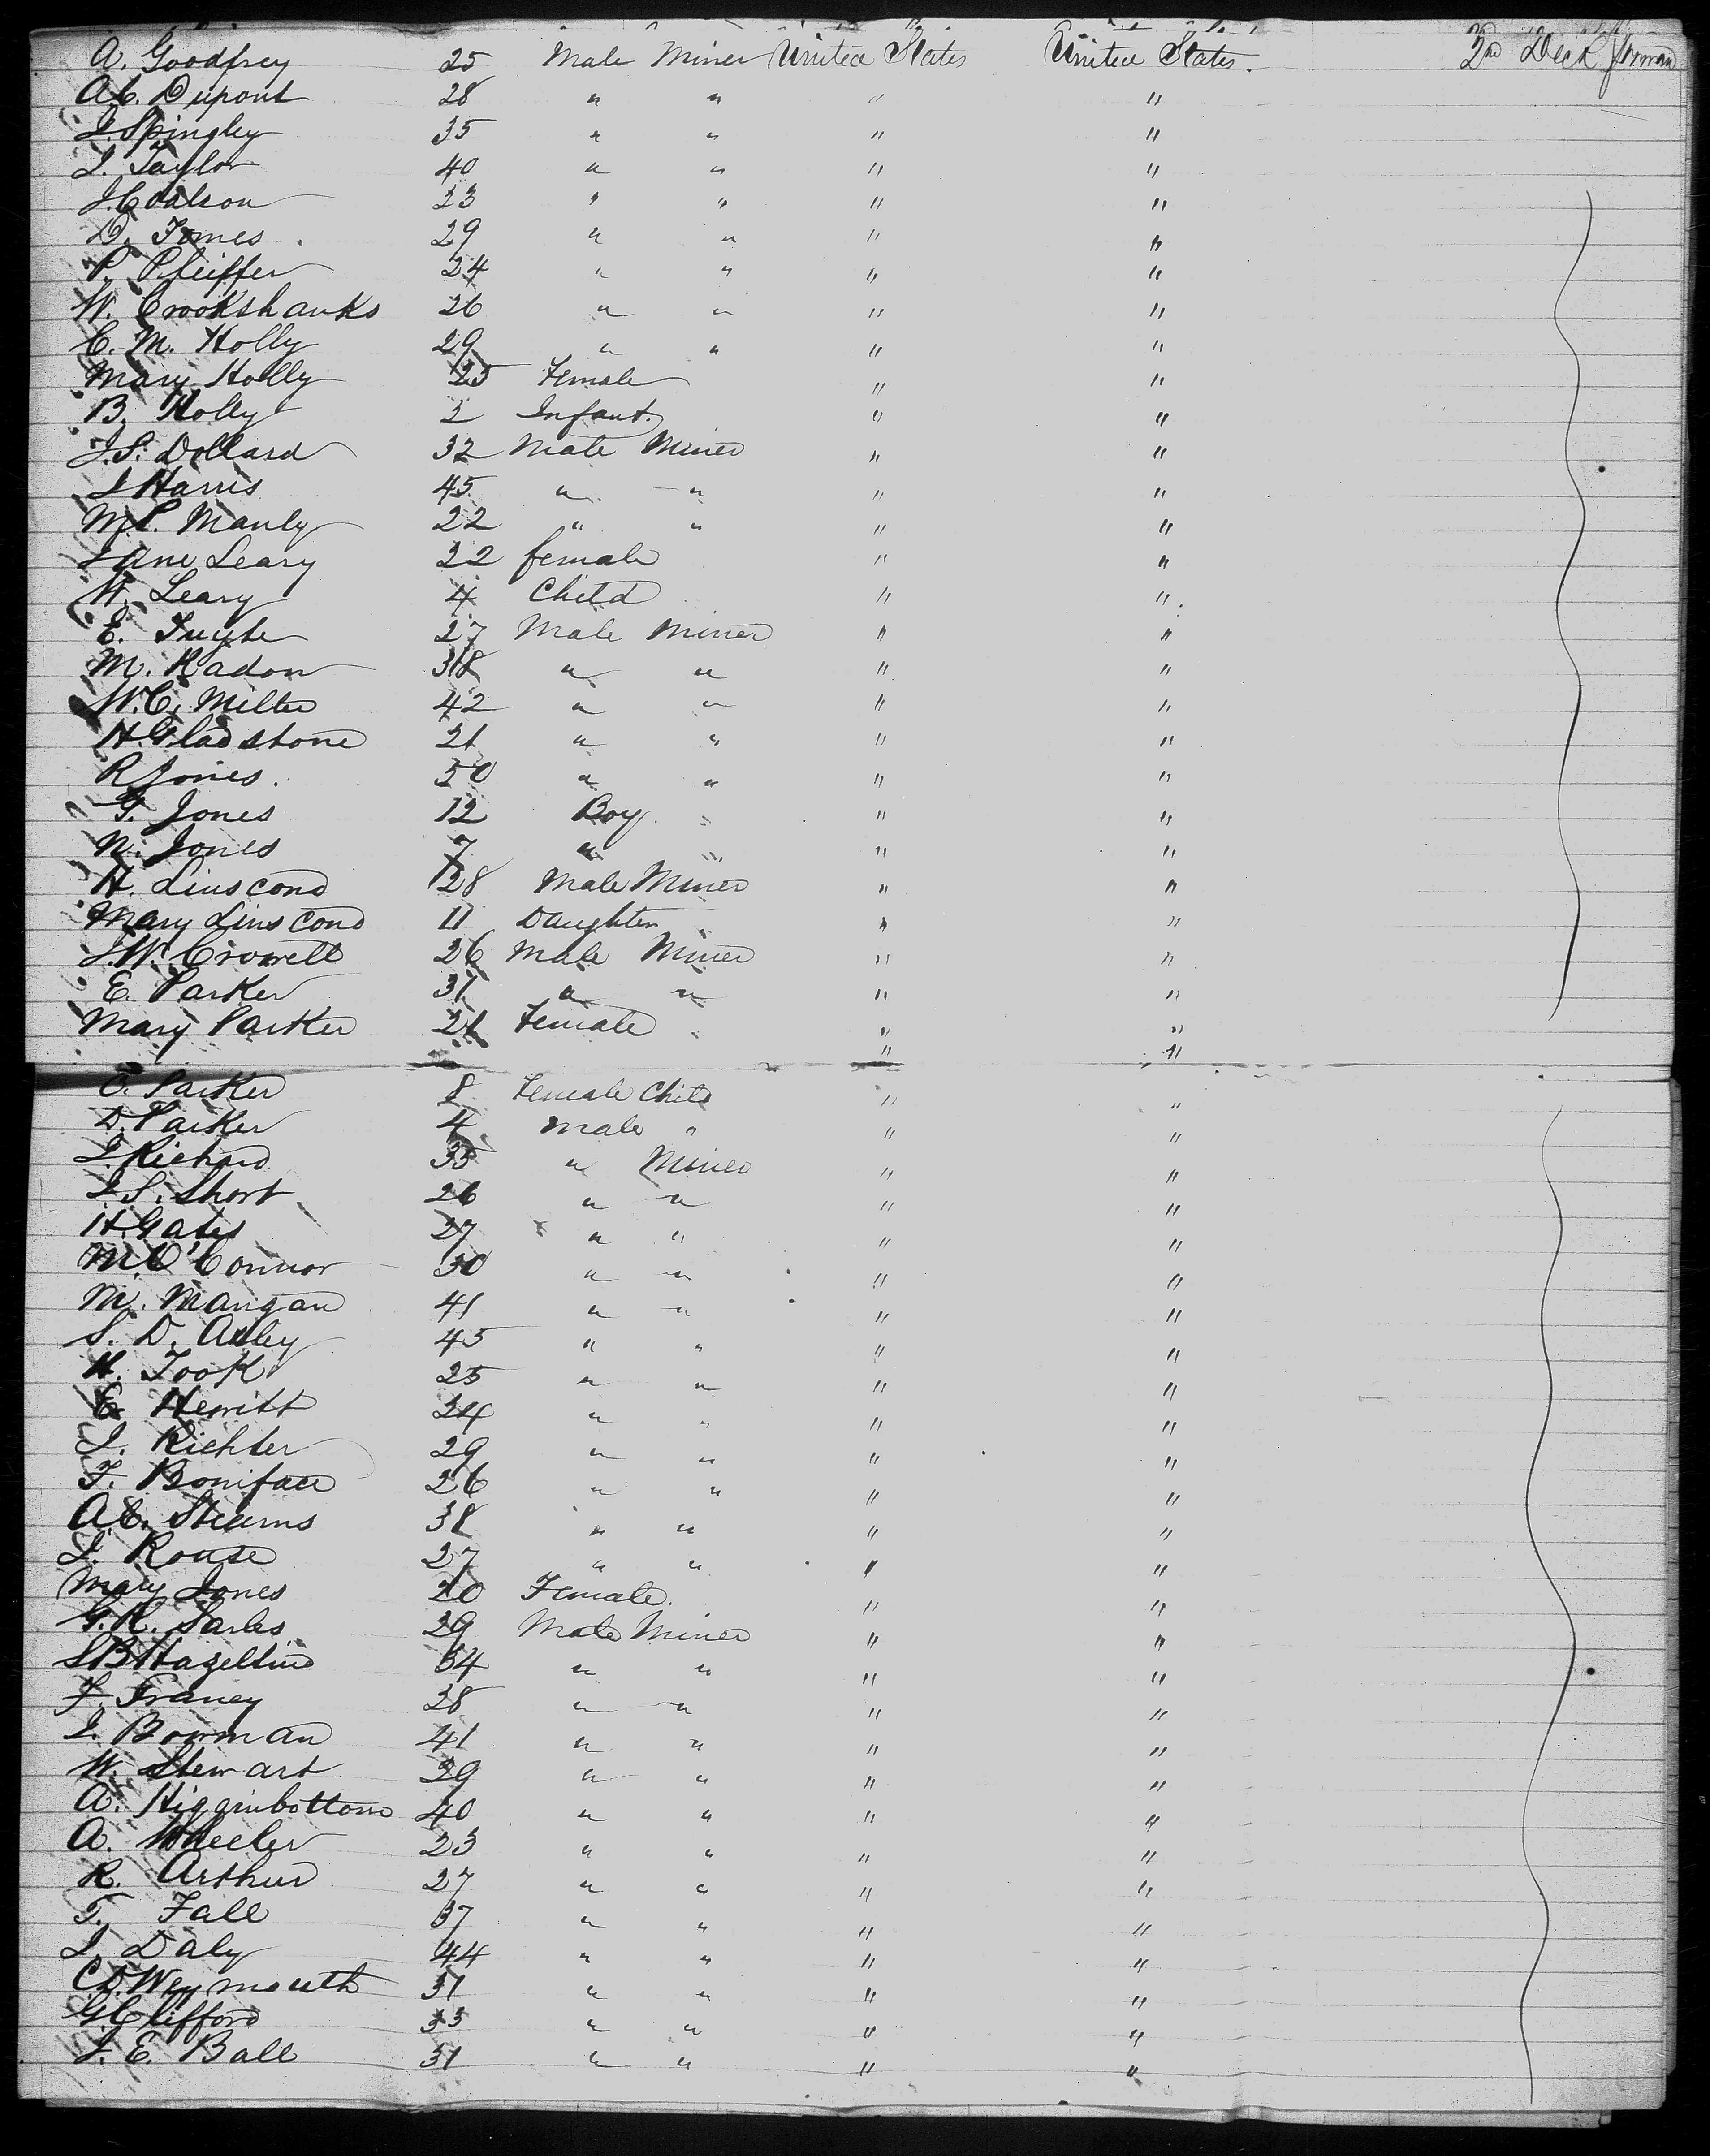 A. Goodfrey 25 Male Miner United States United States. 2nd Deck forward
A.C. Dupont 28 " " " "
J. Spingley 35 " " " "
J. Taylor 40 " " " "
J. Coalson 23 " " " "
D. Jones. 29 " " " "
P. Pfeiffer 24 " " " "
W. Crookshanks 26 " " " "
C. M. Holly 29 " " " "
Mary Holly 25 Female " "
B. Holly 2 Infant. " "
J.S. Dollard 32 Male Miner " "
J Harris 45 " " " "
M.P. Manly 22 " " " "
Jane Leary 22 female " "
W. Leary 4 Child " "
E. 27 Male Miner " "
M. Radon 38 " " " "
W.C. Miller 42 " " " "
H. Gladstone 21 " " " "
R Jones. 50 " " " "
G. Jones 12 Boy " " "
N. Jones 7 " " " "
H. Linscond 28 Male Miner " "
Mary Linscond 11 Daughter " "
J.W. Crowell 26 Male Miner " "
E. Parker 31 " " " "
Mary Parker 21 Female " "
" "
C. Parker 8 Female Child " "
D. Parker 4 Male " " "
J. Richard 35 " Miner " "
J.S. Short 26 " " " "
H Gates 27 " " " "
M. O'Connor 30 " " " "
M. Mangan 41 " " " "
S. D. 45 " " " "
H. Took 25 " " " "
E. Hewitt 24 " " " "
J. Richter 29 " " " "
F. Boniface 26 " " " "
A.C. Stearns 38 " " " "
J. Rouse 27 " " " "
Mary Jones 20 Female. " "
G.R. Sarles 29 Male Miner " "
S B Hazeltine 34 " " " "
F. Franey 28 " " " "
J. Bowman 41 " " " "
W. Stewart 39 " " " "
A. Higginbottom 40 " " " "
A. Wheeler 23 " " " "
R. Arthur 27 " " " "
T. Fall 37 " " " "
J. Daly 44 " " " "
C.D. Weymouth 31 " " " "
G Clifford 33 " " " "
J. E. Ball 31 " " " "